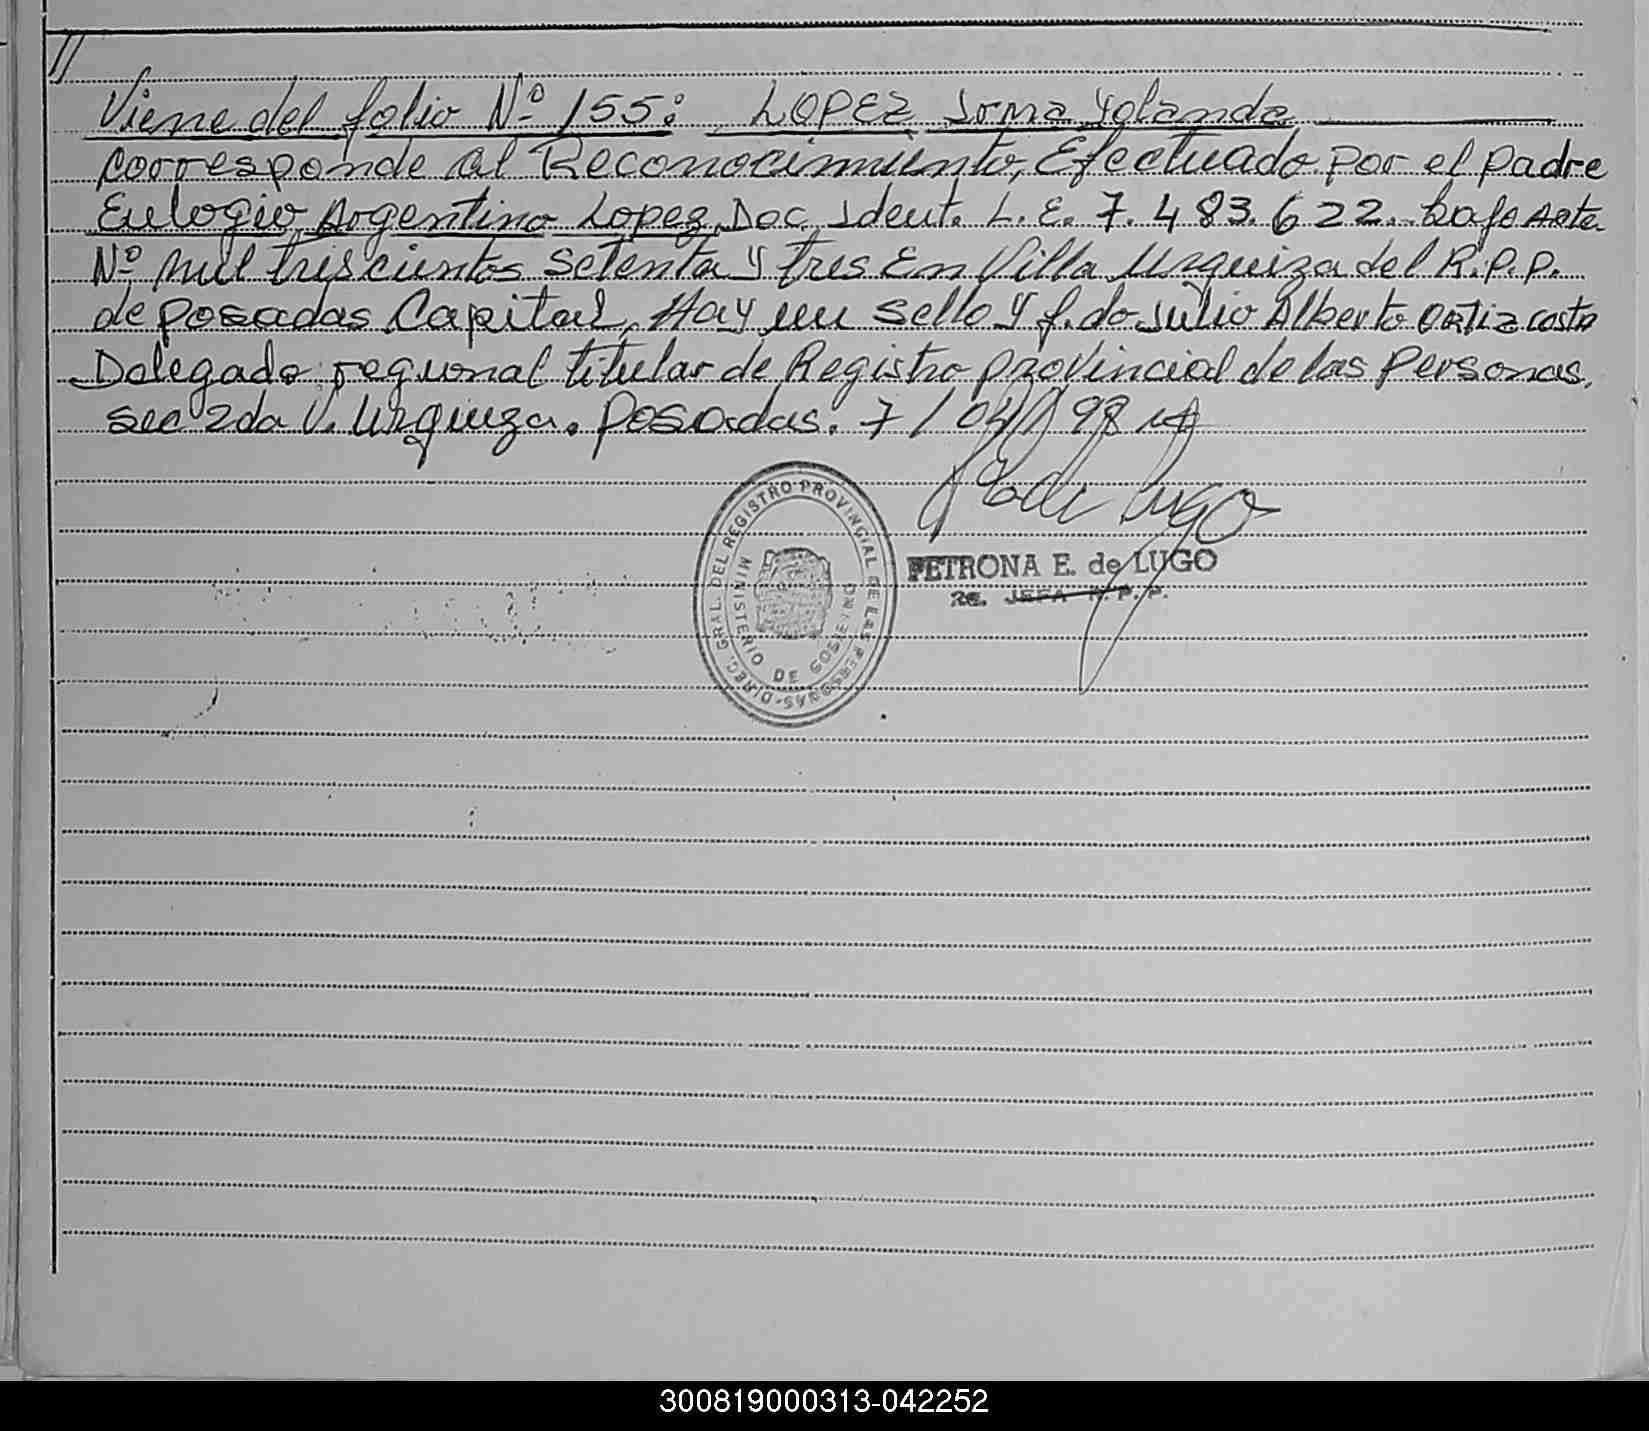 //
Viene del folio Nº 155: LOPEZ Irma Yolanda
corresponde al Reconocimiento, Efectuado por el padre
Eulogio Argentino Lopez, Doc. Ident. L. E. 7.483.622. bajo Acta
Nº mil triscientos setenta y tres En Villa Urquiza del R.P.P.
de posadas Capital, Hay un sello y f.do Julio Alberto Ortiz costa
Delegado regional titular de Registro provincial de las Personas,
sec 2da V. Urquiza. posadas. 7/04/98
de Lugo
DIREC. GRAL. DEL REGISTRO PROVINCIAL DE LAS PERSONAS-
MINISTERIO DE GOBIERNO
PETRONA E. de LUGO
JEFA R. P. P.
300819000313-042252